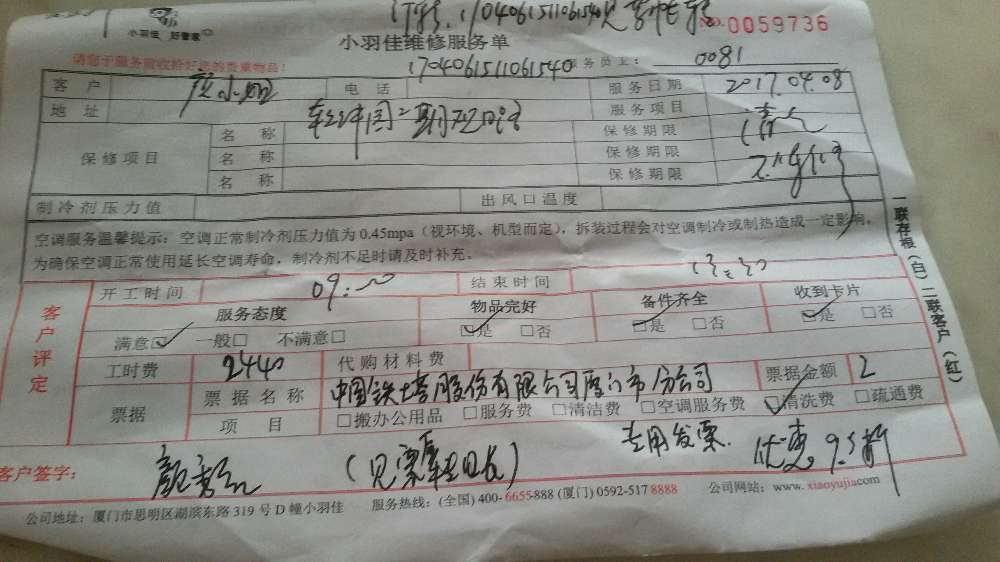 订转:1704061511061540
小羽佳 好管家
№0059736
小羽佳维修服务单
请您于服务前收拾好您的贵重物品!
1704061511061540 服务员工: 0081
客 户 电 话 服务日期 2017.04.08
地 址 服务项目
保修项目 名 称 保修期限
名 称 保修期限
名 称 保修期限
制冷剂压力值 出风口温度
空调服务温馨提示:空调正常制冷剂压力值为0.45mpa(视环境、机型而定),拆装过程会对空调制冷或制热造成一定影响。
为确保空调正常使用延长空调寿命,制冷剂不足时请及时补充。
一联存根(白)二联客户(红)
客户评定
开工时间 09:00 结束时间
服务态度 物品完好 备件齐全 收到卡片
满意☑ 一般□ 不满意□ ☑是 □否 ☑是 □否 ☑是 □否
工时费 2440 代购材料费
票据 票据名称 中国铁塔股份有限公司厦门市分公司 票据金额 2
项 目 □搬办公用品 □服务费 □清洁费 □空调服务费 ☑清洗费 □疏通费
专用发票. 优惠9.5折
客户签字:
公司地址:厦门市思明区湖滨东路319号D幢小羽佳 服务热线:(全国)400-6655-888 (厦门)0592-517 8888 公司网站:www.xiaoyujia.com